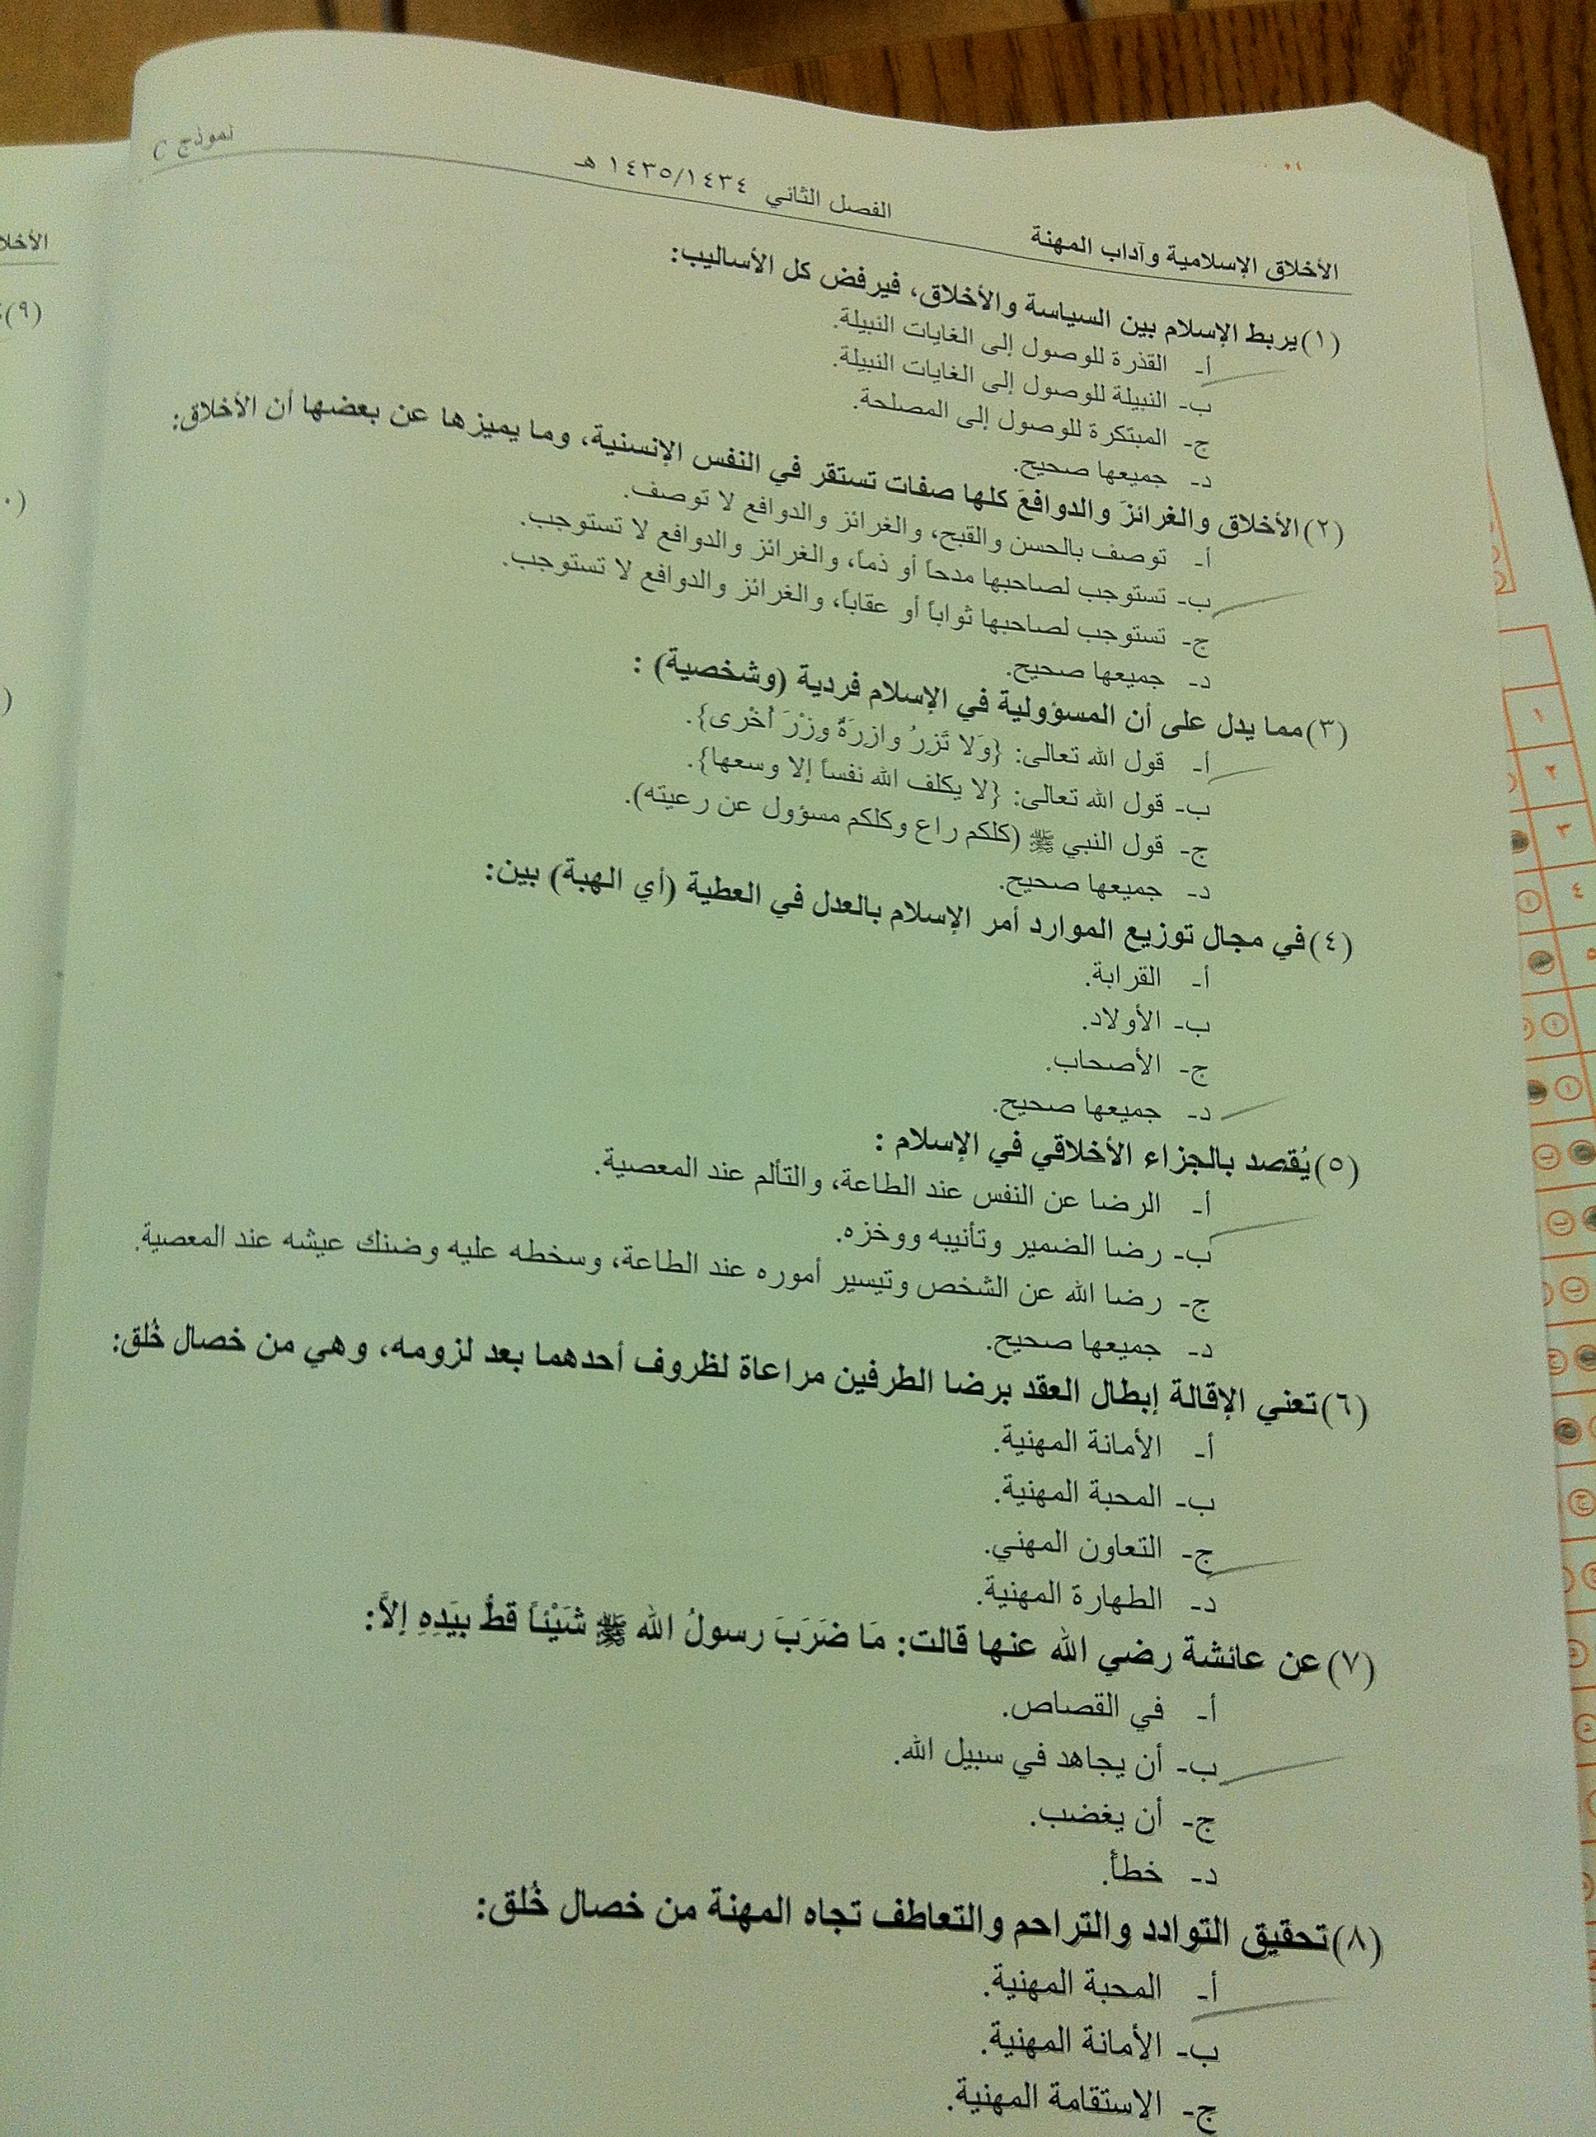 الأخلاق الإسلامية وآداب المهنة الفصل الثاني ١٤٣٥/١٤٣٤ هـ نموذج C
(١) يربط الإسلام بين السياسة والأخلاق، فيرفض كل الأساليب:
أ- القذرة للوصول إلى الغايات النبيلة.
ب- النبيلة للوصول إلى الغايات النبيلة.
ج- المبتكرة للوصول إلى المصلحة.
د- جميعها صحيح.
(٢) الأخلاق والغرائزَ والدوافعَ كلها صفات تستقر في النفس الإنسنية، وما يميزها عن بعضها أن الأخلاق:
أ- توصف بالحسن والقبح، والغرائز والدوافع لا توصف.
ب- تستوجب لصاحبها مدحاً أو ذماً، والغرائز والدوافع لا تستوجب.
ج- تستوجب لصاحبها ثواباً أو عقاباً، والغرائز والدوافع لا تستوجب.
د- جميعها صحيح.
(٣) مما يدل على أن المسؤولية في الإسلام فردية (وشخصية) :
أ- قول الله تعالى: {وَلا تَزِرُ وازِرَةٌ وِزْرَ أُخْرى}.
ب- قول الله تعالى: {لا يكلف الله نفساً إلا وسعها}.
ج- قول النبي ﷺ (كلكم راع وكلكم مسؤول عن رعيته).
د- جميعها صحيح.
(٤) في مجال توزيع الموارد أمر الإسلام بالعدل في العطية (أي الهبة) بين:
أ- القرابة.
ب- الأولاد.
ج- الأصحاب.
د- جميعها صحيح.
(٥) يُقصد بالجزاء الأخلاقي في الإسلام :
أ- الرضا عن النفس عند الطاعة، والتألم عند المعصية.
ب- رضا الضمير وتأنيبه ووخزه.
ج- رضا الله عن الشخص وتيسير أموره عند الطاعة، وسخطه عليه وضنك عيشه عند المعصية.
د- جميعها صحيح.
(٦) تعني الإقالة إبطال العقد برضا الطرفين مراعاة لظروف أحدهما بعد لزومه، وهي من خصال خُلق:
أ- الأمانة المهنية.
ب- المحبة المهنية.
ج- التعاون المهني.
د- الطهارة المهنية.
(٧) عن عائشة رضي الله عنها قالت: مَا ضَرَبَ رسولُ الله ﷺ شَيْئاً قطُّ بيَدِهِ إلاَّ:
أ- في القصاص.
ب- أن يجاهد في سبيل الله.
ج- أن يغضب.
د- خطأً.
(٨) تحقيق التوادد والتراحم والتعاطف تجاه المهنة من خصال خُلق:
أ- المحبة المهنية.
ب- الأمانة المهنية.
ج- الاستقامة المهنية.
الأخلا
(٩)
١
٢
٣
٤
٥